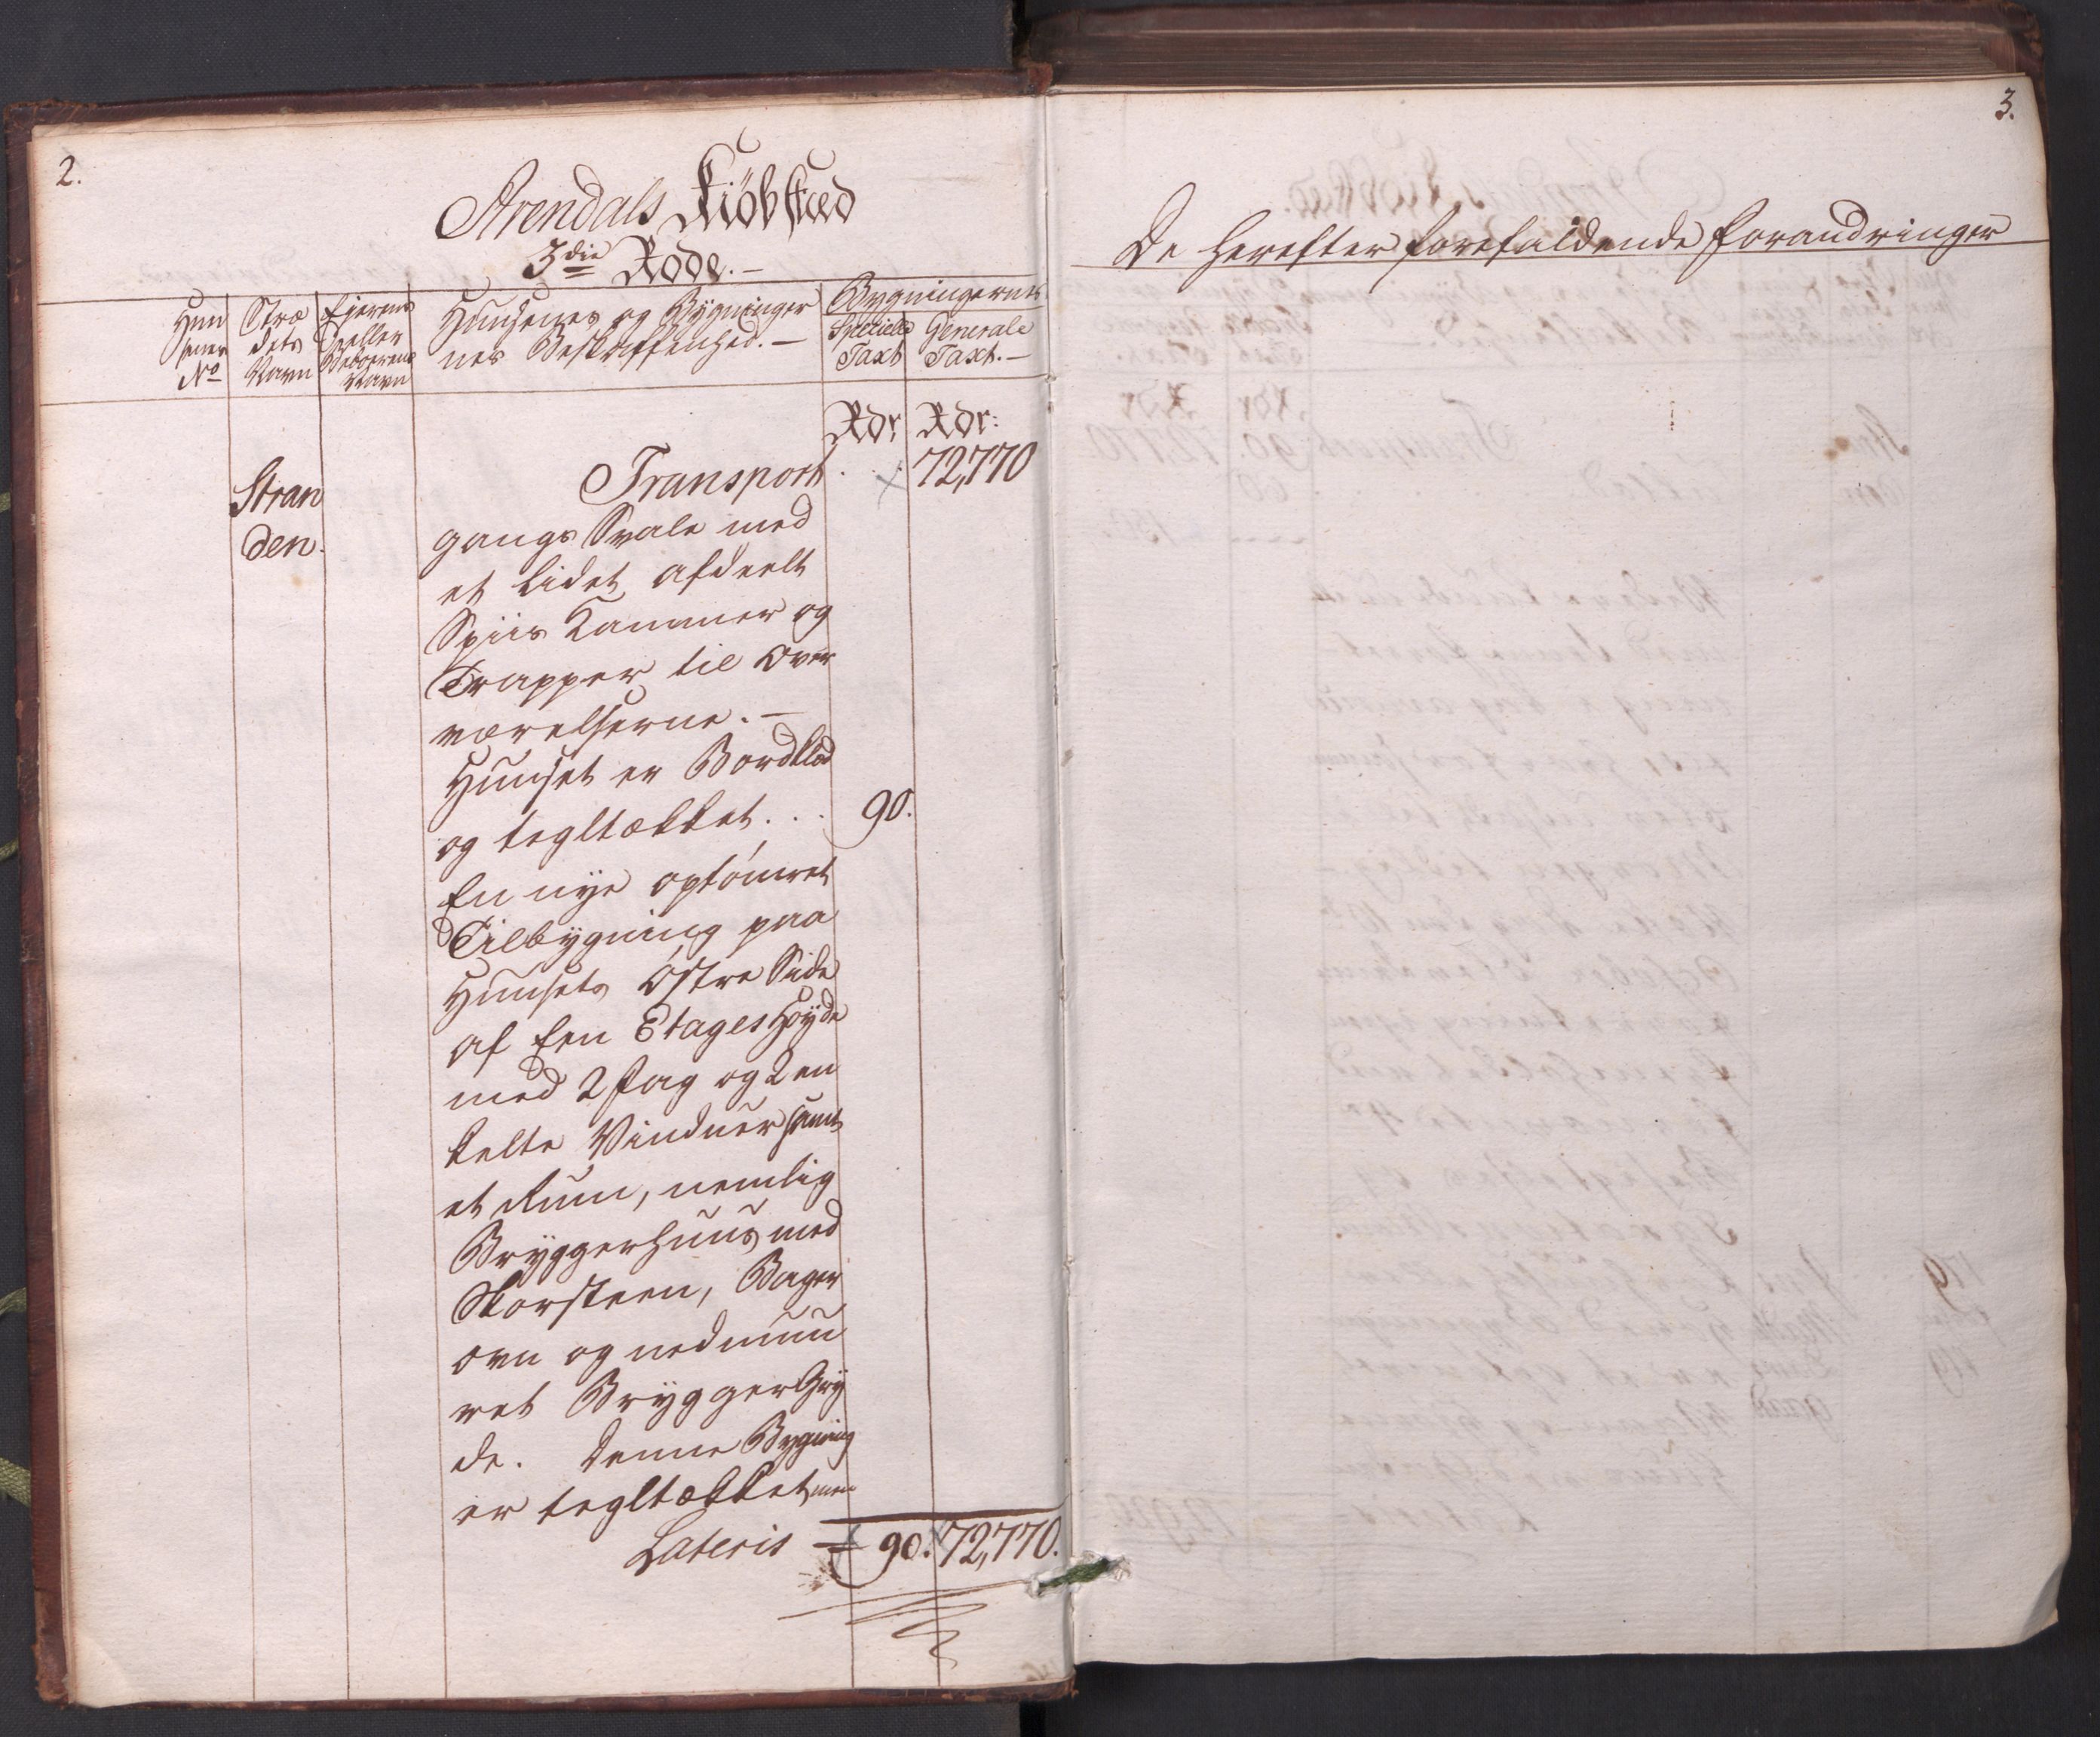 2.
Arendals Kiöbstæd
3die Rode. -
Huu
sener
No
Stræ
dets
Navn
Ejerens
eller
Beboerens
Navn
Huusenes og Bygninger
nes Beskaffenhed. -
Bygningernes
Specielle
Taxt
Generale
Taxt. -
Rdr
Rdr:
Stran
den.
Transport . . . 72,770
gangs Svale med
et lidet afdeelt
Spiis Kammer og
Trapper til Over
værelserne. -
Huuset er Bordklæd
og tegltækket. . . 90.
En nye optömret
Tilbygning paa
Huusets Östre Side
af Een Etages Höyde
med 2 Fag og 2 en
kelte Vinduer samt
et Rum, nemlig
Bryggerhuus med
Skorsteen, Bager
ovn og nedmuu
ret Brygger Gry
de. Denne Bygning
er tegltækket men
Lateris = 90. 72,770.
3.
De herefter forefaldende Forandringer